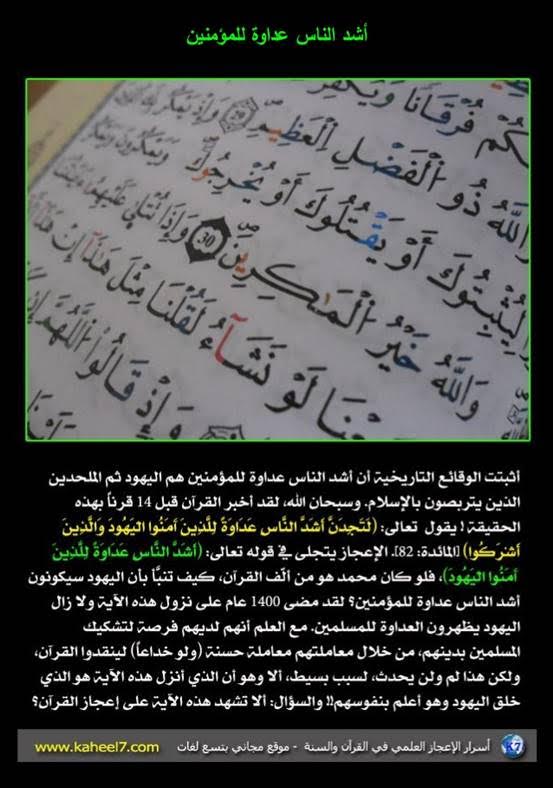 أشد الناس عداوة للمؤمنين
فُرْقَانًا وَيُكَفِّرْ
وَاللَّهُ ذُو الْفَضْلِ الْعَظِيمِ ٢٩ وَإِذْ يَمْكُرُ بِكَ
لِيُثْبِتُوكَ أَوْ يَقْتُلُوكَ أَوْ يُخْرِجُوكَ وَيَمْكُرُونَ وَيَمْكُرُ
وَاللَّهُ خَيْرُ الْمَاكِرِينَ 30 وَإِذَا تُتْلَى عَلَيْهِمْ
لَوْ نَشَاءُ لَقُلْنَا مِثْلَ هَذَا إِنْ هَذَا
وَإِذْ قَالُوا اللَّهُمَّ إِن
أثبتت الوقائع التاريخية أن أشد الناس عداوة للمؤمنين هم اليهود ثم الملحدين
الذين يتربصون بالإسلام. وسبحان الله، لقد أخبر القرآن قبل 14 قرناً بهذه
الحقيقة! يقول تعالى: (لَتَجِدَنَّ أَشَدَّ النَّاسِ عَدَاوَةً لِلَّذِينَ آمَنُوا الْيَهُودَ وَالَّذِينَ
أَشْرَكُوا) [المائدة: 82]. الإعجاز يتجلى في قوله تعالى: (أَشَدَّ النَّاسِ عَدَاوَةً لِلَّذِينَ
آمَنُوا الْيَهُودَ)، فلو كان محمد هو من ألّف القرآن، كيف تنبَّأ بأن اليهود سيكونون
أشد الناس عداوة للمؤمنين؟ لقد مضى 1400 عام على نزول هذه الآية ولا زال
اليهود يظهرون العداوة للمسلمين. مع العلم أنهم لديهم فرصة لتشكيك
المسلمين بدينهم، من خلال معاملتهم معاملة حسنة (ولو خداعاً) لينقدوا القرآن،
ولكن هذا لم ولن يحدث، لسبب بسيط، ألا وهو أن الذي أنزل هذه الآية هو الذي
خلق اليهود وهو أعلم بنفوسهم!! والسؤال: ألا تشهد هذه الآية على إعجاز القرآن؟
K7 أسرار الإعجاز العلمي في القرآن والسنة - موقع مجاني بتسع لغات www.kaheel7.com